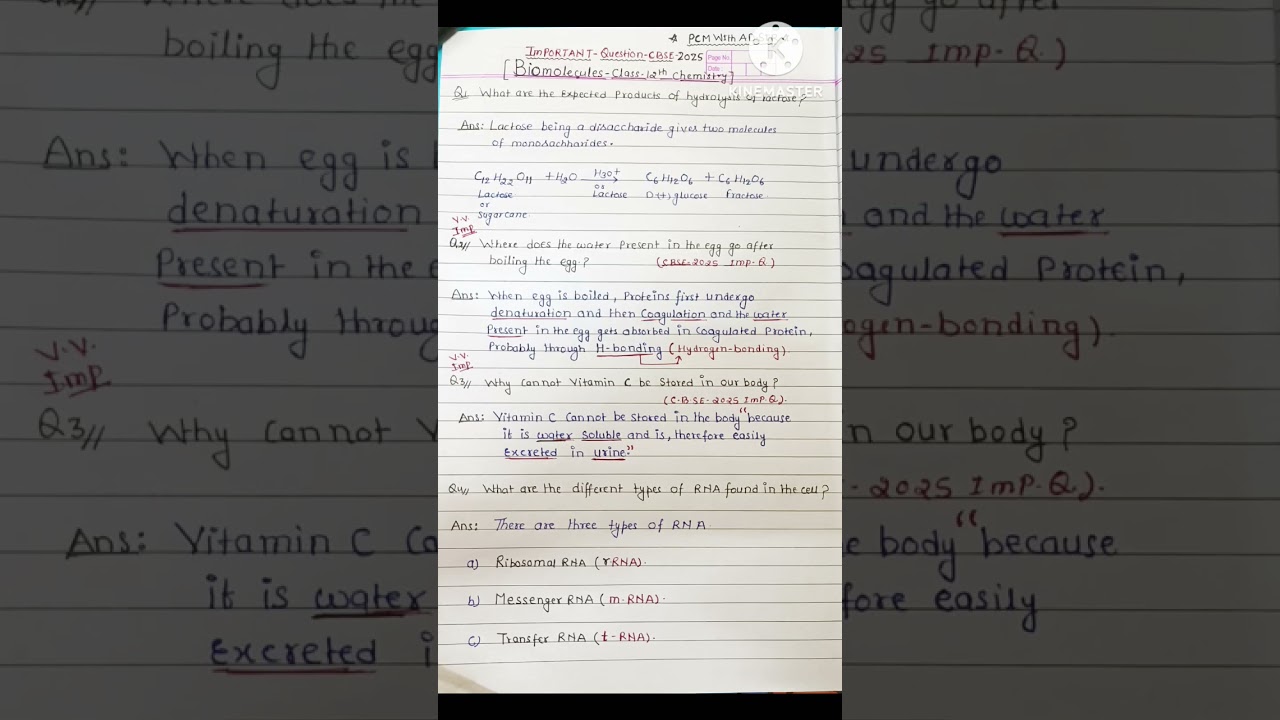 ☆ PCM With
IMPORTANT-Question-CBSE-2025
Page No.
Date
[Biomolecules-Class-12th Chemistry]
KINEMASTER
Q1 What are the Expected Products of hydrolysis of lactose?
Ans: Lactose being a disaccharide gives two molecules
of monosachharides.
C12H22O11 + H2O H3O+ → C6H12O6 + C6H12O6
or
Lactose Lactose D(+) glucose fractose
or
Sugarcane
V.V.
Imp
Q2// Where does the water Present in the egg go after
boiling the egg? (CBSE-2025 Imp-Q)
Ans: When egg is boiled, Proteins first undergo
denaturation and then Coagulation and the water
Present in the egg gets absorbed in Coagulated Protein,
Probably through H-bonding (Hydrogen-bonding).
V.V.
Imp
Q3// Why cannot Vitamin C be Stored in our body?
(C-B-SE-2025 Imp.Q).
Ans: Vitamin C Cannot be Stored in the body "because
it is water Soluble and is, therefore easily
Excreted in urine."
Q4// What are the different types of RNA found in the cell?
Ans: There are three types of RNA.
a) Ribosomal RNA (rRNA).
b) Messenger RNA (m-RNA).
c) Transfer RNA (t-RNA).